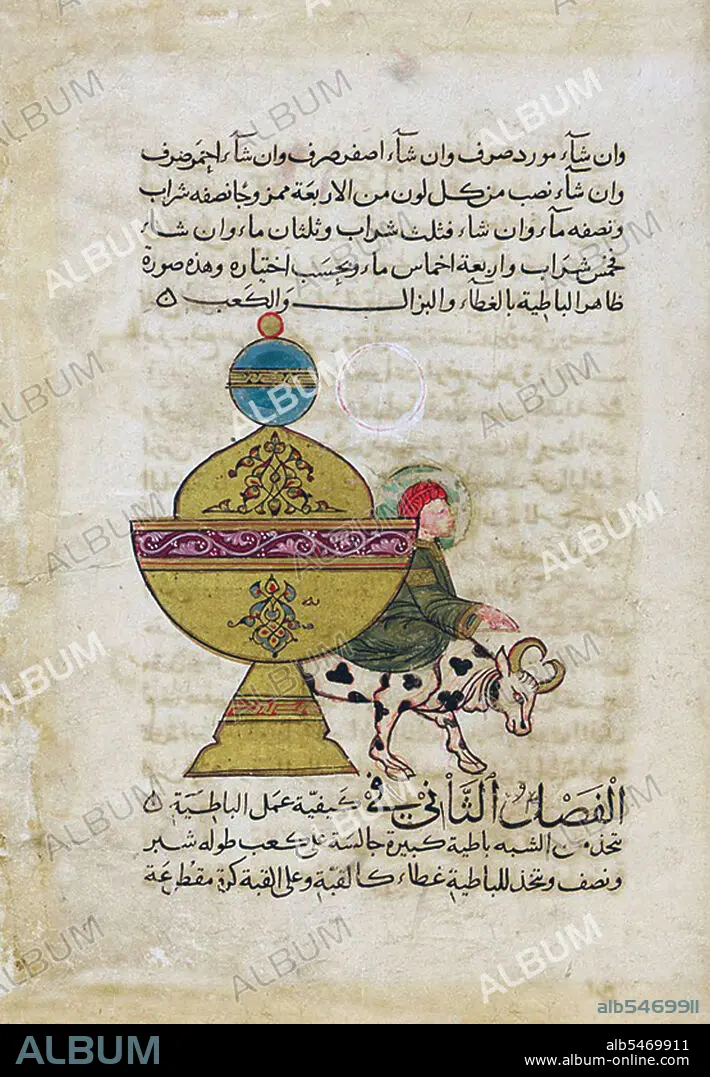 وان شآء مورد صرف وان شآء اصفر صرف وان شآء احمر صرف
وان شآء نصب من كل لون من الاربعة ممزوجا نصفه شراب
ونصفه مآء وان شاء فثلث شراب وثلثان مآء وان شاء
فخمس شراب واربعة اخماس مآء وبحسب اختياره وهذه صورة
ظاهر الباطية بالغطآء والبزال والكعب
الفصل الثاني في كيفية عمل الباطية
تتخذ من الشبه باطية كبيرة جالسة على كعب طوله شبر
ونصف وتتخذ للباطية غطاء كالقبة وعلى القبة كرة مقطوعة
alb5469911
ALBUM
alb5469911
www.album-online.com